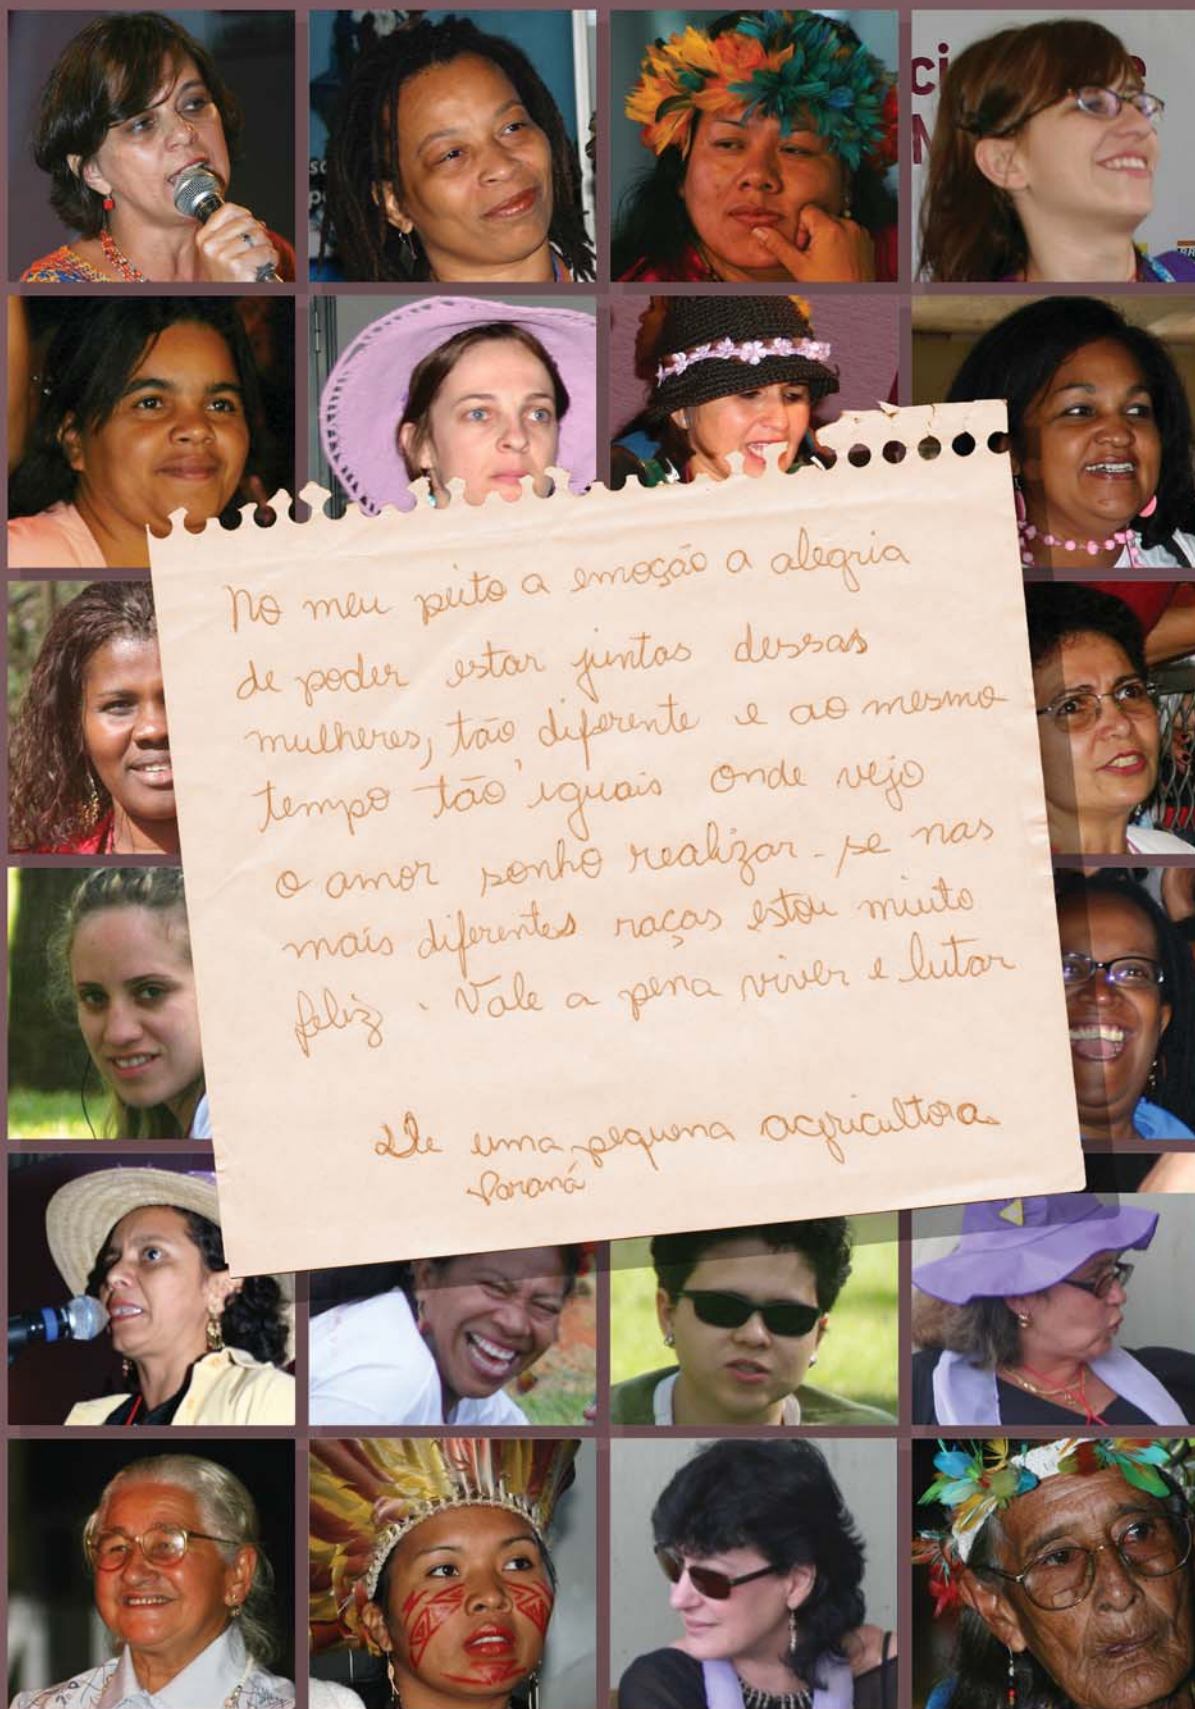 ci
No meu peito a emoção a alegria
de poder estar juntas dessas
mulheres, tão diferente e ao mesmo
tempo tão iguais onde vejo
o amor sonho realizar-se nas
mais diferentes raças estou muito
feliz. Vale a pena viver e lutar
De uma pequena agricultora
Paraná